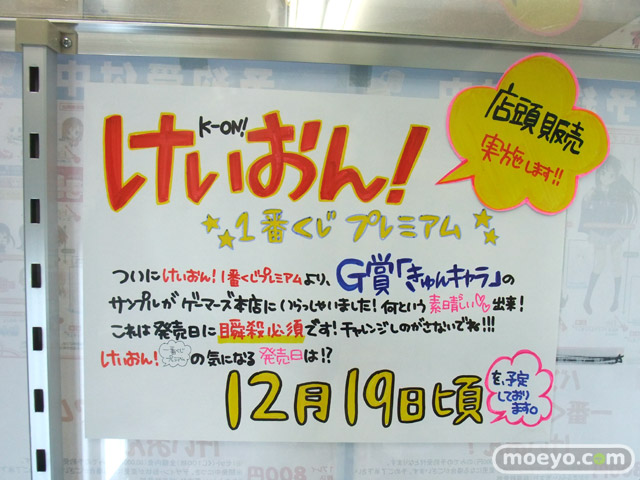 店頭販売
実施します!!
K-ON!
けいおん!
1番くじプレミアム
ついにけいおん!1番くじプレミアムより、G賞「きゅんキャラ」の
サンプルがゲーマーズ本店にいらっしゃいました!何という素晴しい♡出来!
これは発売日に瞬殺必須です!チャレンジしのがさないでね!!!
けいおん!一番くじプレミアムの気になる発売日は!?
12月19日頃
を、予定
しており
ます。
moeyo.com
800円